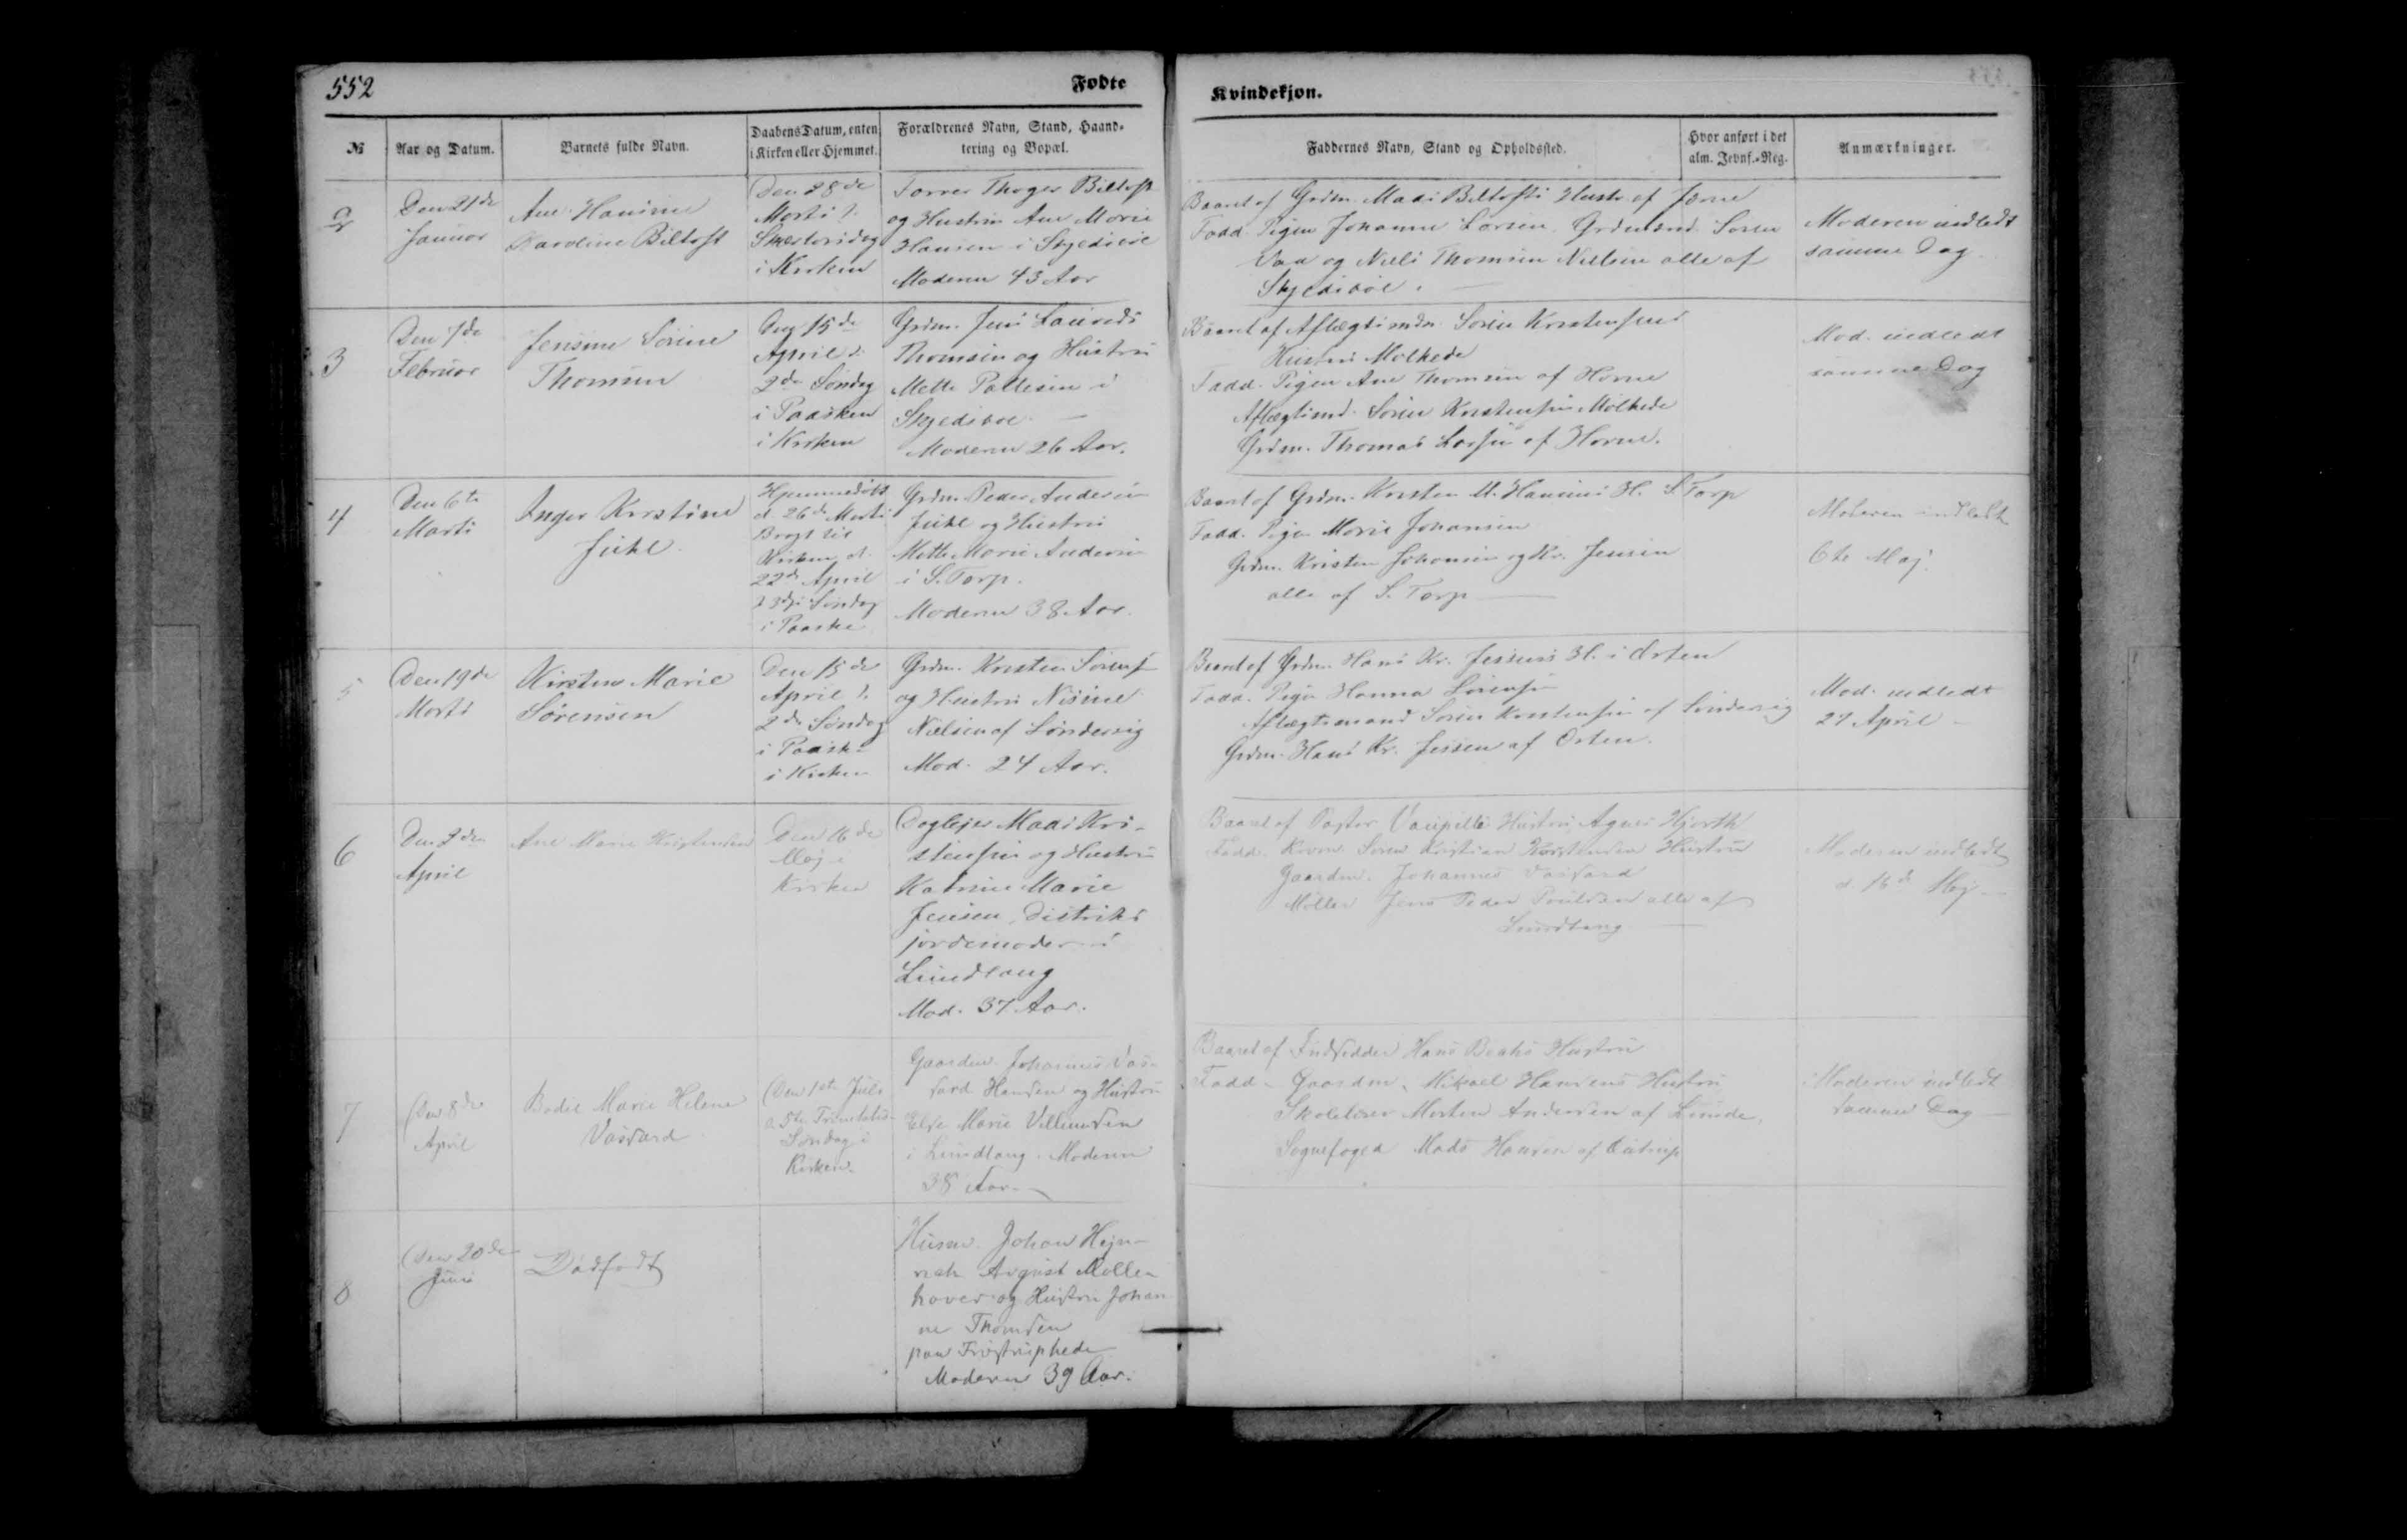 552
Fødte
Kvindekjøn.
№
Aar og Datum.
Barnets fulde Navn.
Daabens Datum, enten
i Kirken eller Hjemmet.
Forældrenes Navn, Stand, Haand-
tering og Bopæl.
Faddernes Navn, Stand og Opholdssted.
Hvor anført i det
alm. Jevnf.-Reg.
Anmærkninger.
2
Den 21de
Januar
Ane Hansine
Karoline Biltoft
Den 28de
Marts
Skærtorsdag
i Kirken
Thøger Biltoft
og Hustru Ane Marie
Hansen i Skjedsbøl
Moderen 43 Aar
Baaret af Grdm. Mads Biltofts Hustr. af Jerne
Fadd. Pigen Johanne Larsen. Grdmænd. Søren
Vaa og Niels Thomsen Nielsen alle af
Skjedsbøl.
Moderen indledt
samme Dag
3
Den 7de
Februar
Jensine Sørine
Thomsen
Den 15de
April
2de Søndag
i Paasken
i Kirken
Grdm. Jens Laurids
Thomsen og Hustru
Mette Pallesen i
Skjedsbøl
Moderen 26 Aar.
Baaret af Aftægtsmdn. Søren Kristensens
Hustru Malkede
Fadd. Pigen Ane Thomsen af Horne
Aftægtsmd. Søren Kristensen Mølkede
Grdm. Thomas Larsen af Horne.
Mod. indledt
samme Dag
4
Den 6te
Marts
Inger Kirstine
Juhl
Hjemmedøbt
d. 26de Marts
Bragt til
Kirken d.
22de April
3die Søndag
i Paaske
Grdm. Peder Andersen
Juhl og Hustru
Mette Marie Andersen
i S. Torp.
Moderen 38 Aar.
Baaret af Grdm. Kristen M. Hansens H. S. Torp
Fadd. Pigen Marie Johansen
Grdm. Kristen Johansen og Kr. Jensen
alle af S. Torp
Moderen indledt
6te Maj.
5
Den 19de
Marts
Kirstine Marie
Sørensen
Den 15de
April
2de Søndag
i Paaske
i Kirken
Grdm. Kristen Sørensen
og Hustru Nisine
Nielsen af Søndervig
Mod. 24 Aar.
Baaret af Grdm. Hans Kr. Jessens H. i Orten
Fadd. Pigen Hanna Sørensen
Aftægtsmand Søren Kristensen af Søndervig
Grdm. Hans Kr. Jessen af Orten.
Mod. indledt
27 April
6
April
Ane Marie Kristensen
Den 16de
Maj i
Kirken
Daglejer Mads Kri-
stensen og Hustru
Katrine Marie
Jensen, Distrikts
jordemoder i
Lundtang
Mod. 37 Aar.
Baaret af Pastor Vaupells Hustru Agnes Hjorth
Fadd. Kone Søren Kristian Kristensen Hustru
Gaardm. Johannes Vasgard
Møller Jens Peder Poulsen alle af
Lundtang
Moderen indledt
d. 16de Maj
7
Den 8de
April
Bodil Marie Helene
Vasgard
Den 1ste Juli
5te Trinitatis
Søndag i
Kirken.
Gaardm. Johannes Vas-
gard Hansen og Hustru
Else Marie Villumsen
i Lundtang. Moderen
38 Aar.
Baaret af Indsidder Hans Hustru
Fadd. Gaardm. Mikael Hansens Hustru
Skolelærer Morten Andersen af Lunde,
Sognefoged Mads Hansen af Outrup
Moderen indledt
samme Dag
8
Den 20de
Juni
Dødfødt
Husm. Johan Hejn-
rich August Møllen
hover og Hustru Johan
ne Thomsen
paa Frøstruphede
Moderen 39 Aar.